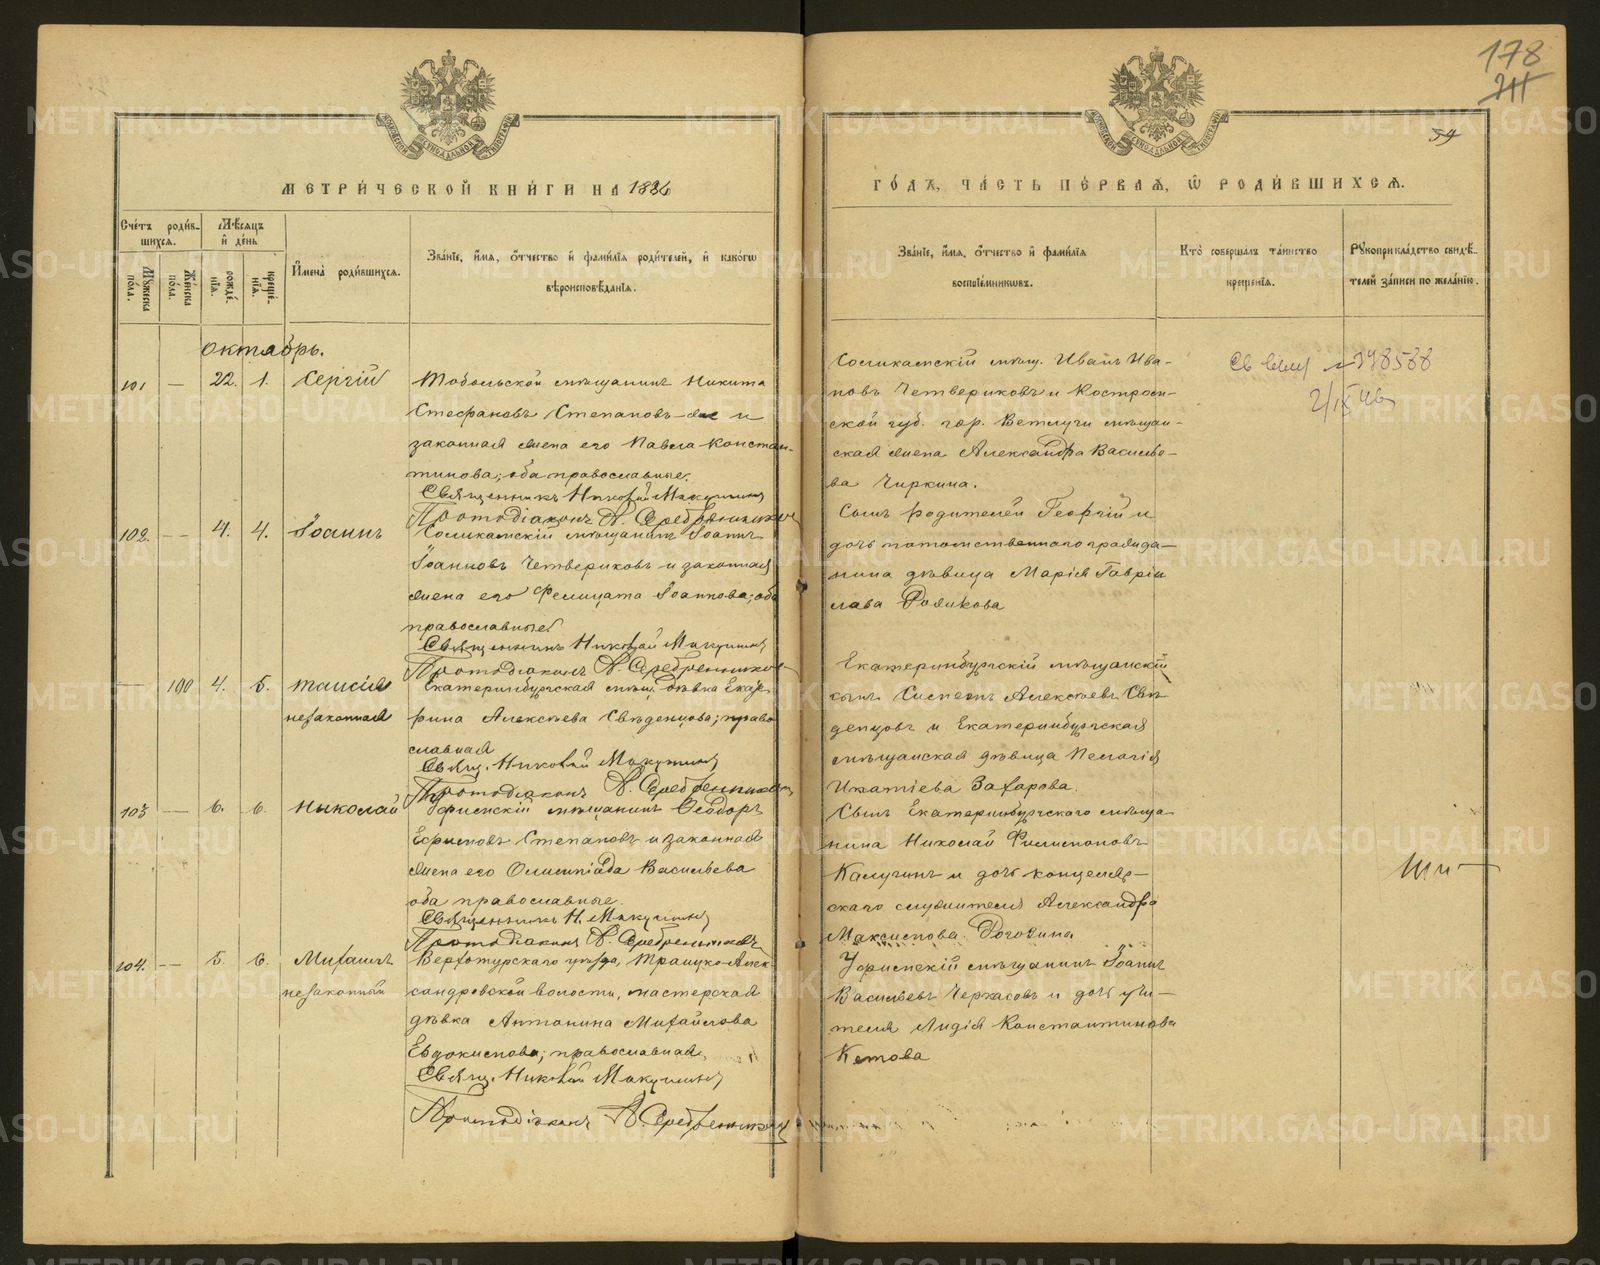 178
54
МЕТРИ́ЧЕСКОЙ КНИ́ГИ НА 1886
ГО́ДЪ, ЧА́СТЬ ПЕ́РВАЯ, Ѿ РОДИ́ВШИХСЯ.
Сче́тъ роди́вшихся.
Мѣ́сяцъ и҆ де́нь
Мꙋ́жеска по́ла.
Же́нска по́ла.
рожде́нїя.
креще́нїя.
И҆мена̀ роди́вшихся.
Зва́нїе, и҆́мя, ѻ҆́тчество и҆ фами́лїя роди́телей, и҆ како́гѡ вѣроисповѣ́данїя.
Зва́нїе, и҆́мя, ѻ҆́тчество и҆ фами́лїя воспрїе́мникѡвъ.
Кто̀ соверша́лъ та́инство креще́нїя.
Рꙋкоприкла́дство свидѣ́телей за́писи по жела́нїю.
Октябрь.
101 — 22. 1. Сергій
Тобольской мѣщанинъ Никита
Стефановъ Степановъ и
законная жена его Павла Констан-
тинова; оба православные.
Священникъ Николай Макушинъ
Протодіаконъ А. Серебренниковъ
Соликамскій мѣщ. Иванъ Ива-
новъ Четвериковъ и Костром-
ской губ. гор. Ветлуги мѣщан-
ская жена Александра Василье-
ва Чиркина.
2/IX 46
102. — 4. 4. Іоаннъ
Соликамскій мѣщанинъ Іоаннъ
Іоанновъ Четвериковъ и законная
жена его Фелицата Іоаннова; оба
православные.
Священникъ Николай Макушинъ
Протодіаконъ А. Серебренниковъ
Сынъ родителей Георгій и
дочь потомственнаго гражда-
нина дѣвица Марія Гавріи-
лова
— 100 4. 5. Таисія
незаконная
Екатеринбургская мѣщ. дѣвка Екате-
рина Алексѣева Свѣденцова; право-
славная
Свящ. Николай Макушинъ
Протодіаконъ А. Серебренниковъ
Екатеринбургскій мѣщанскій
сынъ Симеонъ Алексѣевъ Свѣ-
денцовъ и Екатеринбургская
мѣщанская дѣвица Пелагія
Игнатіева Захарова.
103 — 6. 6. Николай
Уфимскій мѣщанинъ Ѳеодоръ
Ефимовъ Степановъ и законная
жена его Олимпіада Васильева
оба православные.
Священникъ Н. Макушинъ
Протодіаконъ А. Серебренниковъ
Сынъ Екатеринбургскаго мѣща-
нина Николай Филимоновъ
Калугинъ и дочь канцеляр-
скаго служителя Александра
Максимова Рогозина
104. — 5. 6. Михаилъ
незаконный
Верхотурскаго уѣзда, Троицко-Алек-
сандровской волости, мастерская
дѣвка Антонина Михайлова
Евдокимова; православная.
Свящ. Николай Макушинъ
Протодіаконъ А. Серебренниковъ
Уфимскій мѣщанинъ Іоаннъ
Васильевъ Черкасовъ и дочь учи-
теля Лидія Константинова
Кетова
METRIKI.GASO-URAL.RU